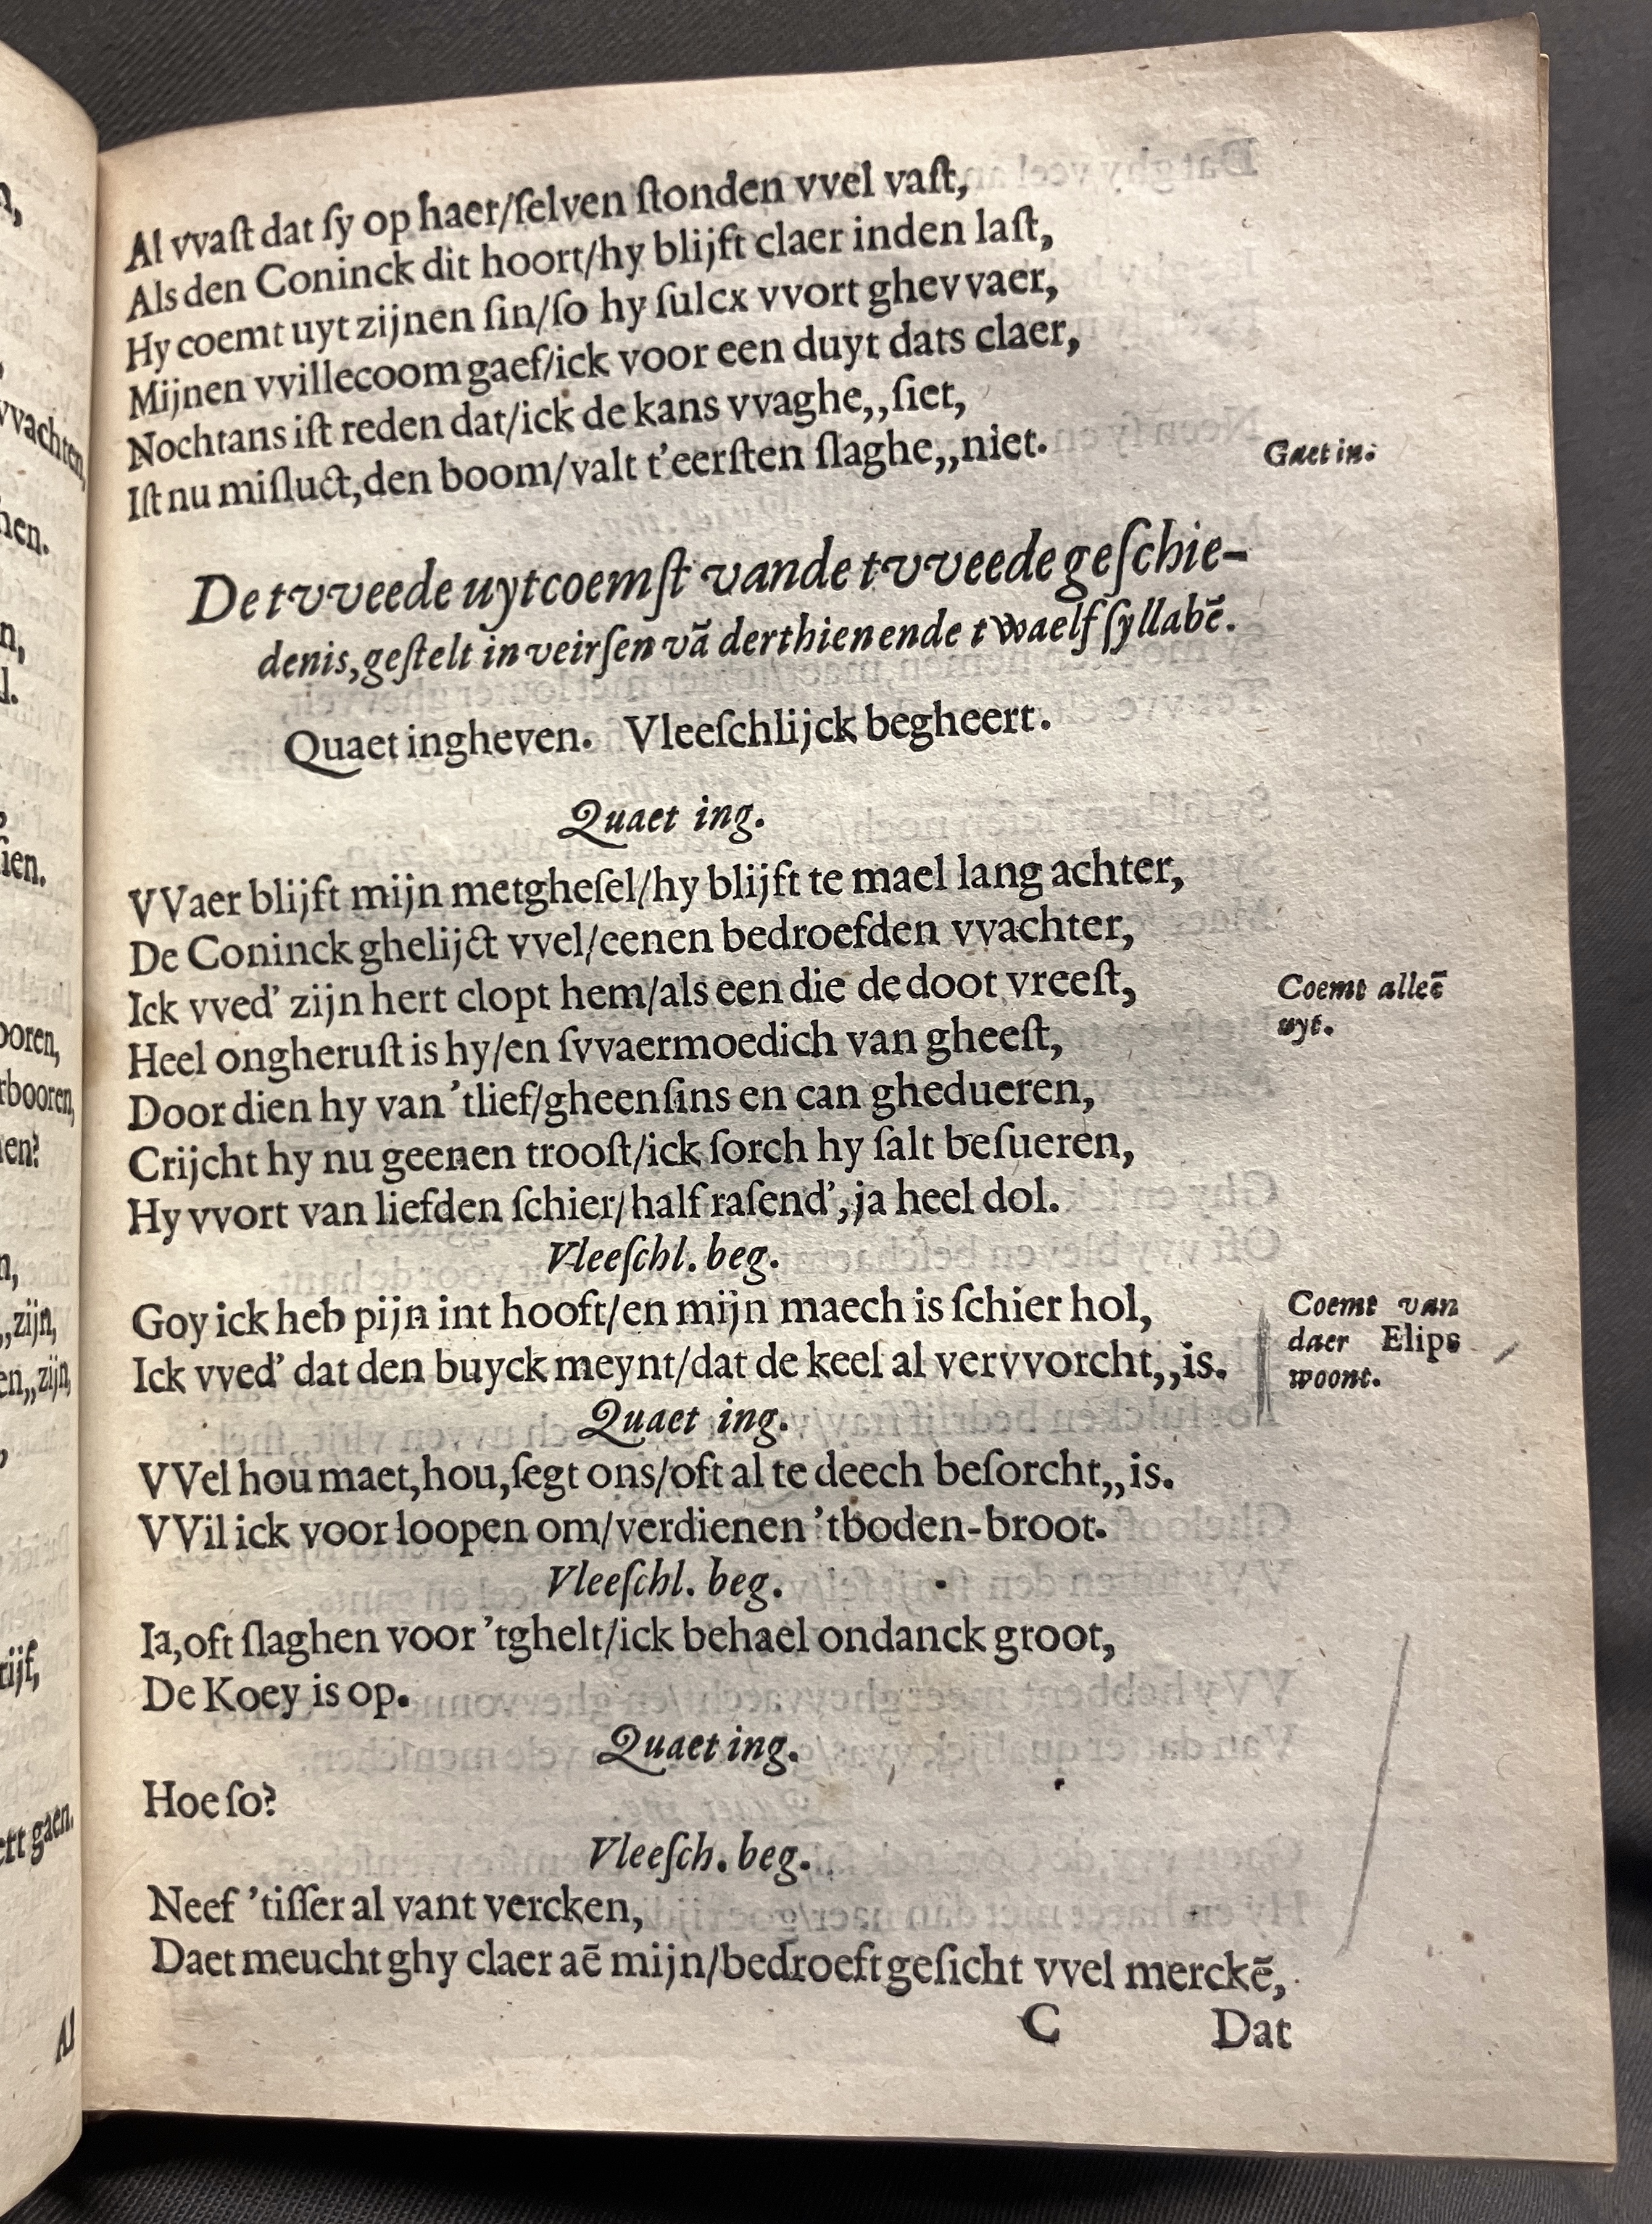 Al vvaſt dat ſy op haer/ſelven ſtonden vvel vaſt,
Als den Coninck dit hoort/hy blijft claer inden laſt,
Hy coemt uyt zijnen ſin/ſo hy ſulcx vvort ghevvaer,
Mijnen vvillecoom gaef/ick voor een duyt dats claer,
Nochtans iſt reden dat/ick de kans vvaghe,,ſiet,
Iſt nu miſluct,den boom/valt t'eerſten ſlaghe,,niet.
Gaet in.
De tvveede uytcoemſt vande tvveede geſchie-
denis,geſtelt in veirſen vā derthien ende twaelf ſyllabē.
Quaet ingheven. Vleeſchlijck begheert.
Quaet ing.
VVaer blijft mijn metgheſel/hy blijft te mael lang achter,
De Coninck ghelijct vvel/eenen bedroefden vvachter,
Ick vved' zijn hert clopt hem/als een die de doot vreeſt,
Coemt alleē
uyt.
Heel ongheruſt is hy/en ſvvaermoedich van gheeſt,
Door dien hy van 'tlief/gheenſins en can ghedueren,
Crijcht hy nu geenen trooſt/ick ſorch hy ſalt beſueren,
Hy vvort van liefden ſchier/half raſend', ja heel dol.
Vleeſchl. beg.
Goy ick heb pijn int hooft/en mijn maech is ſchier hol,
Ick vved' dat den buyck meynt/dat de keel al vervvorcht,,is.
Coemt van
daer Elips
woont.
Quaet ing.
VVel hou maet,hou,ſegt ons/oft al te deech beſorcht,,is.
VVil ick voor loopen om/verdienen 'tboden-broot.
Vleeſchl. beg.
Ia,oft ſlaghen voor 'tghelt/ick behael ondanck groot,
De Koey is op.
Quaet ing.
Hoe ſo?
Vleeſch. beg.
Neef 'tiſſer al vant vercken,
Daet meucht ghy claer aē mijn/bedroeft geſicht vvel merckē,
C Dat